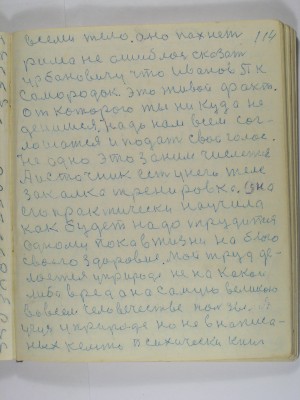 всеми тело. оно пахнет 114
рима не ошиблая сказат
урбановичу что Иванов П к
Самородок это живой факть
от которого ты никуда не
денишся. надо нам всем сог-
лошатся и подат свой голос.
Не одно это заним числется
А источник есть унего теле
закалка тренировка. она
его практически научила
как будет надо трудится
одному пока в жизни на благо
своего здоровия. мой труд де-
лается уприроде не на какой
либо вред а на самую великою
вовсем человечестве
учуся уприроде но не в написа-
ных кемто психически книг